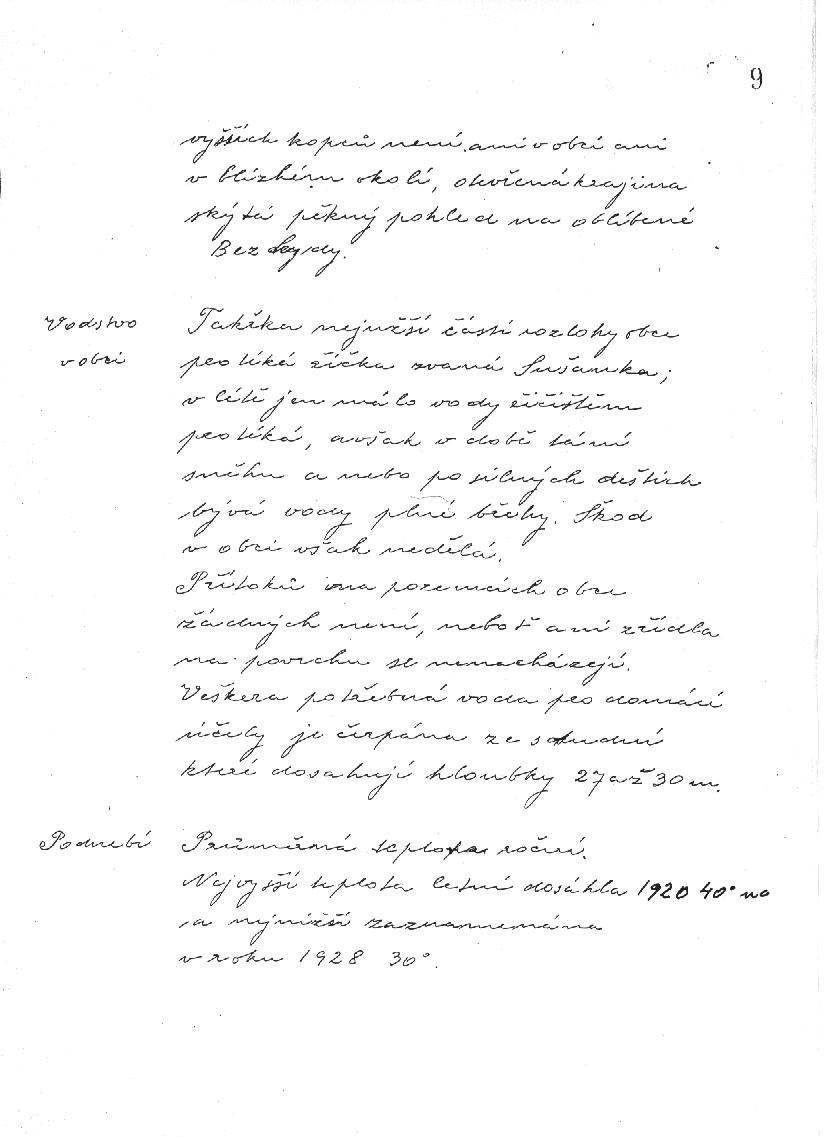 9
vyšších kopců není ani v obci ani
v blízkém okolí, otevřená krajina
skýtá pěkný pohled na oblíbené
Bezkydy.
Vodstvo
v obci
Takřka nejužší částí rozlohy obce
protéká říčka zvaná Sušanka;
v létě jen málo vody řičištěm
protéká, avšak v době tání
sněhu a nebo po silných deštích
bývá vody plné břehy. Škod
v obci však nedělá.
Přítoků na pozemcích obce
žádných není, neboť ani zřídla
na povrchu se nenacházejí.
Veškera potřebná voda pro domácí
účely je čerpána ze studní
které dosahují hloubky 27 až 30 m.
Podnebí
Průměrná teplota roční.
Nejvyšší teplota letní dosáhla 1920 40°
a nejnižší zaznamenána
v roku 1928 30°.